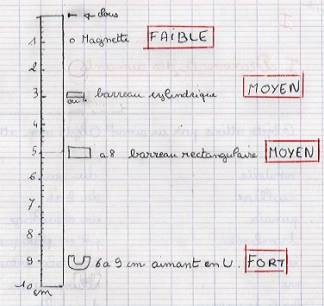 clous
1 Magnette FAIBLE
2
MOYEN
3 ou barreau cylindrique
4
5 a 8 barreau rectangulaire MOYEN
6
7
8
9 6 a 9 cm aimant en U. FORT
10 cm